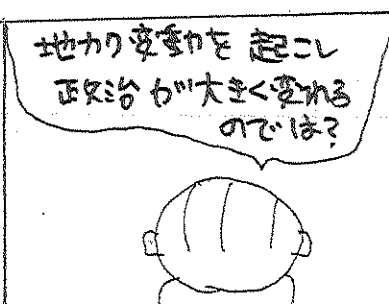 地カク変動を起こし
政治が大きく変わる
のでは?